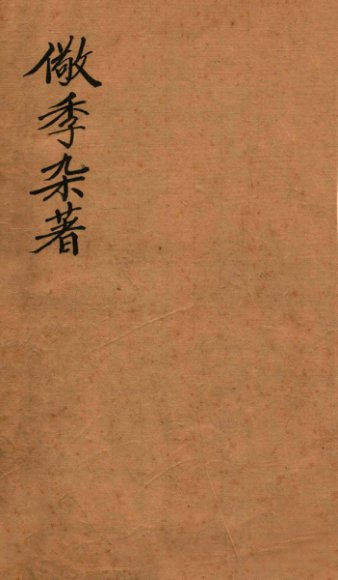 儆季杂著